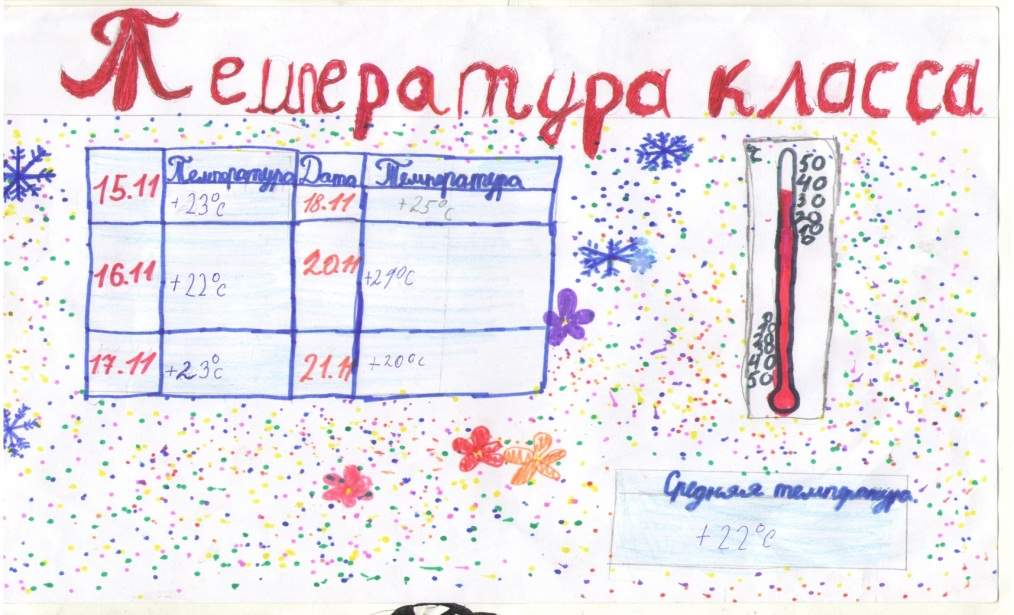 Температура класса
15.11 Температура Дата Температура
+23°с 18.11 +25°с
16.11 +22°с 20.11 +21°с
17.11 +23°с 21.11 +20°с
50
40
30
20
10
0
0
10
20
30
40
50
Средняя температура
+22°с